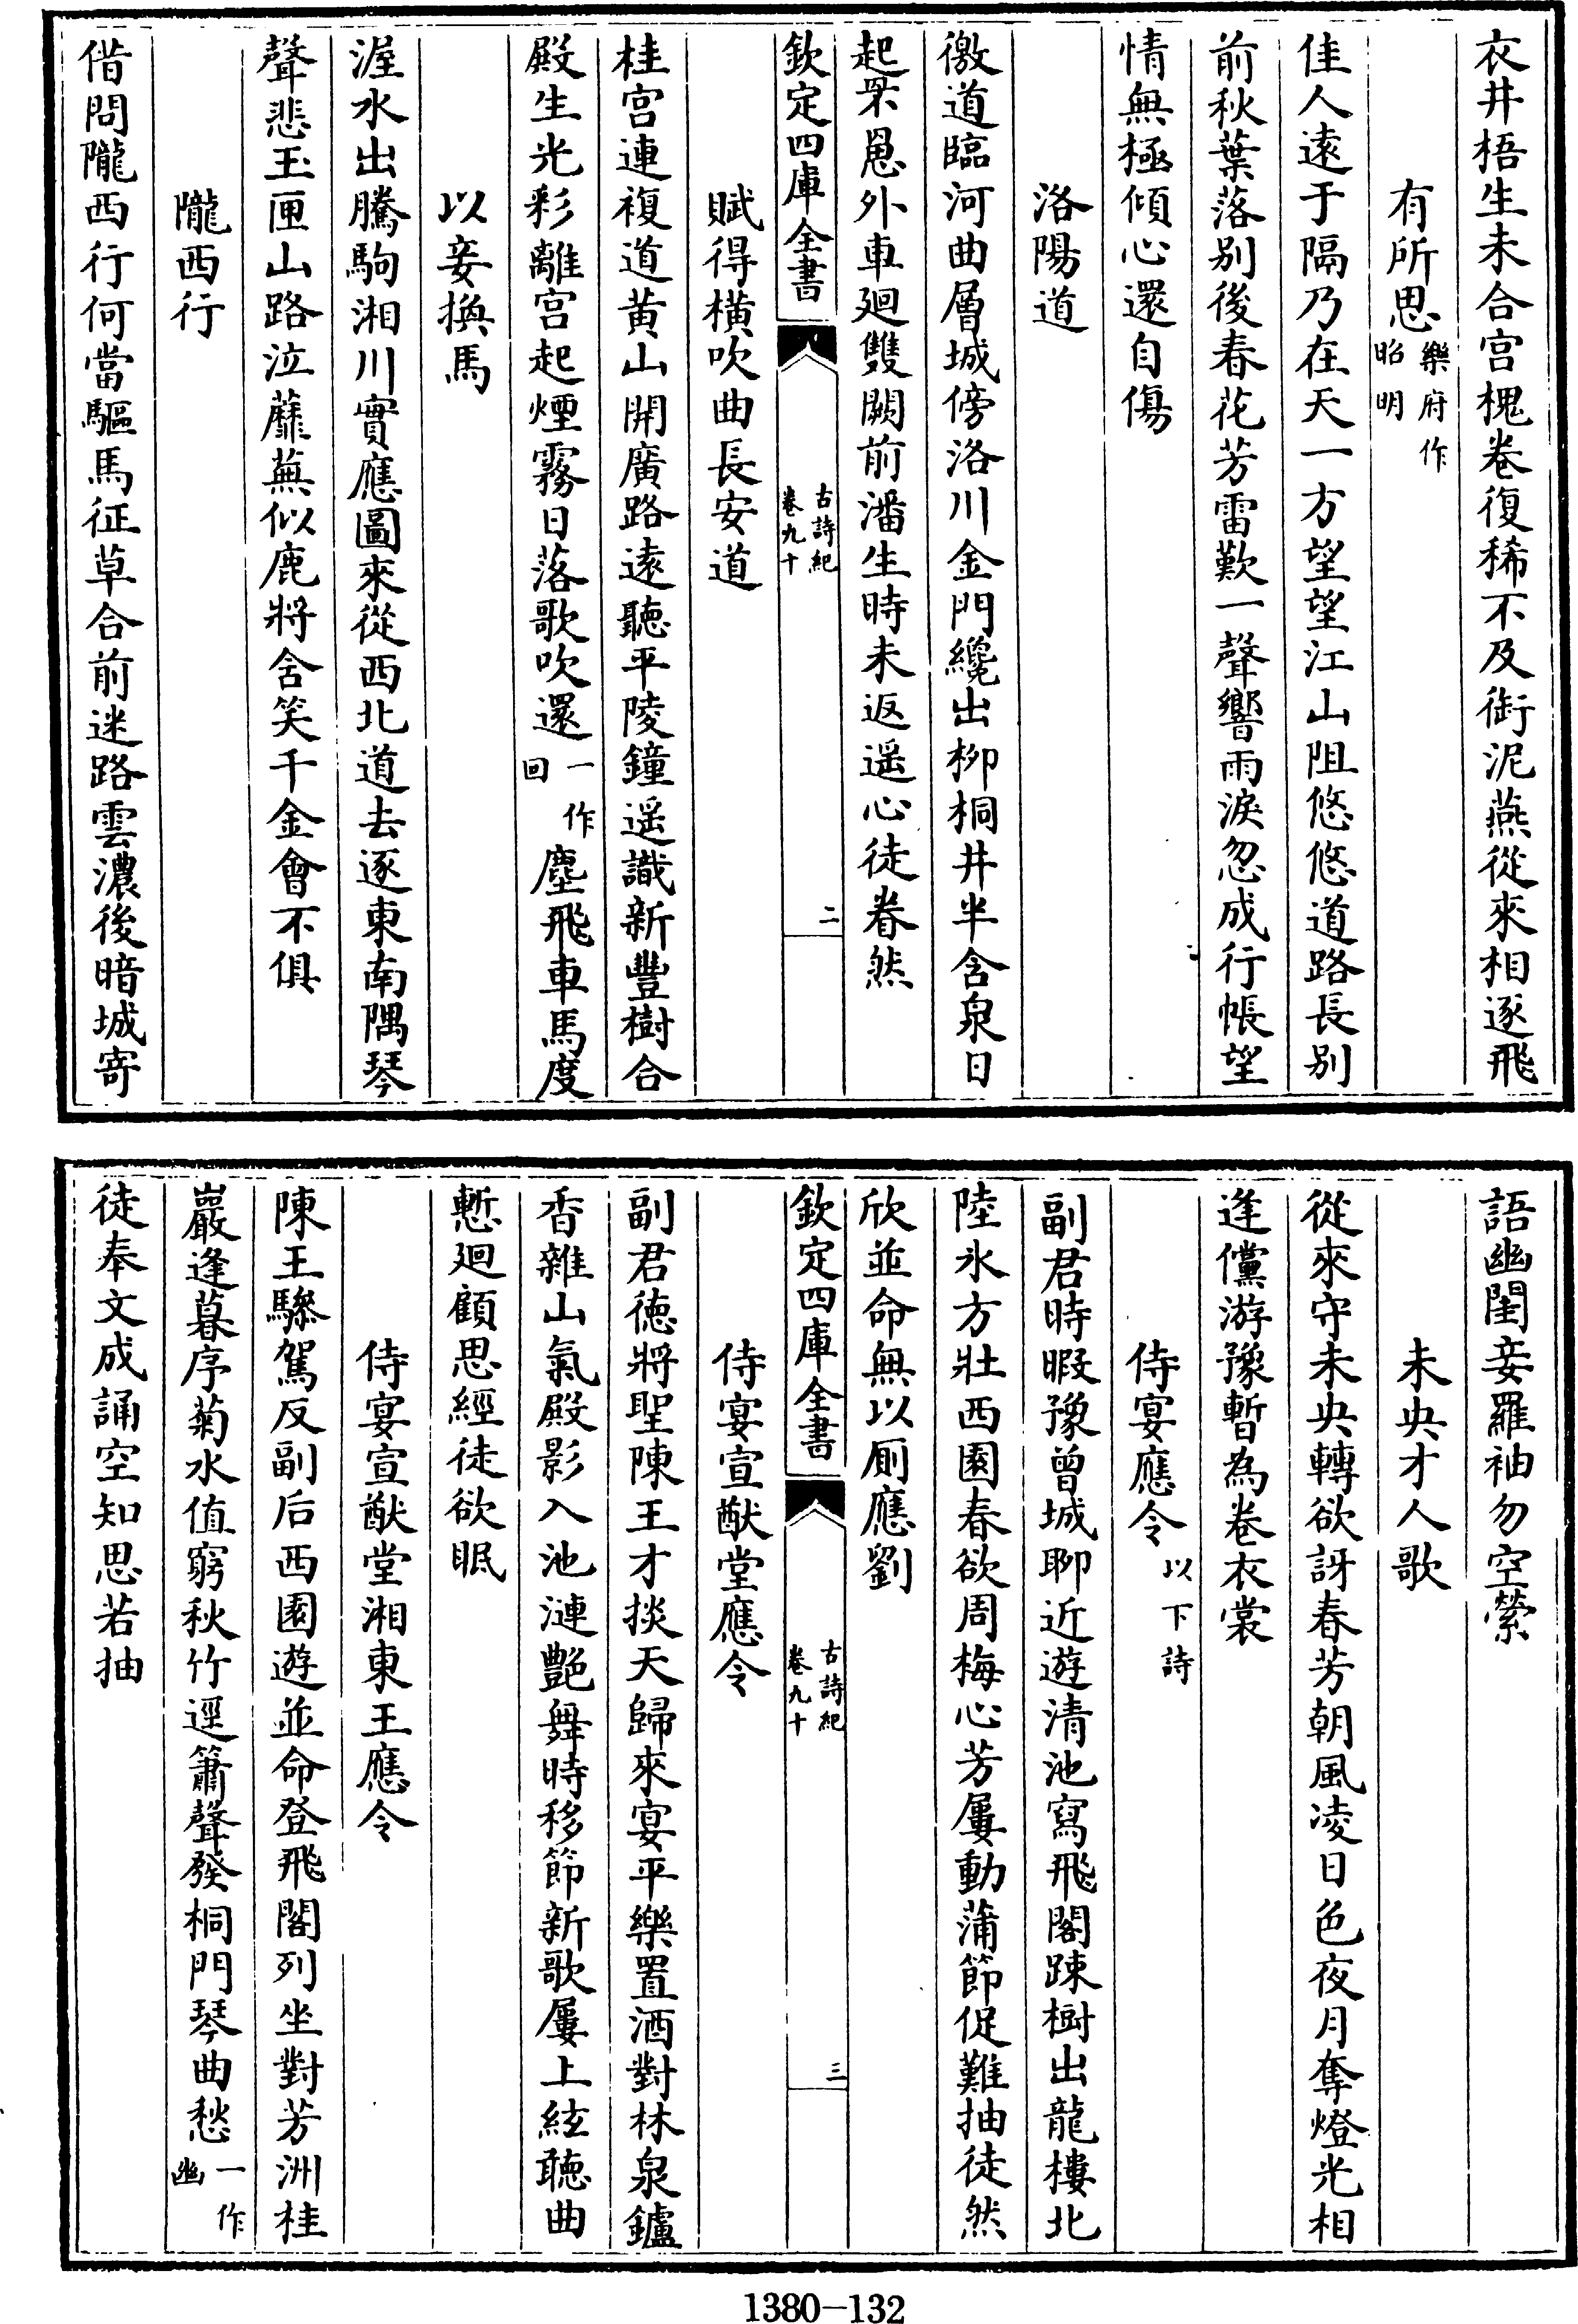 衣井梧生未合宫槐卷復稀不及銜泥燕從來相逐飛
有所思樂府作昭明
佳人遠于隔乃在天一方望望江山阻悠悠道路長别
前秋葉落别後春花芳雷歎一聲響雨淚忽成行悵望
情無極傾心還自傷
洛陽道
徼道臨河曲層城傍洛川金門纔出柳桐井半含泉日
起罘罳外車廻雙闕前潘生時未返遥心徒眷然
欽定四庫全書
古詩紀
卷九十
二
賦得橫吹曲長安道
桂宫連複道黄山開廣路遠聽平陵鐘遥識新豐樹合
殿生光彩離宫起煙霧日落歌吹還一作回塵飛車馬度
以妾換馬
渥水出騰駒湘川實應圖來從西北道去逐東南隅琴
聲悲玉匣山路泣蘼蕪似鹿將含笑千金會不俱
隴西行
借問隴西行何當驅馬征草合前迷路雲濃後暗城寄
語幽閨妾羅袖勿空縈
未央才人歌
從來守未央轉欲訝春芳朝風凌日色夜月奪燈光相
逢儻游豫暫為卷衣裳
侍宴應令以下詩
副君時暇豫曽城聊近遊清池寫飛閣踈樹出龍樓北
陸氷方壯西園春欲周梅心芳屢動蒲節促難抽徒然
欣並命無以厠應劉
欽定四庫全書
古詩紀
卷九十
三
侍宴宣猷堂應令
副君徳將聖陳王才掞天歸來宴平樂置酒對林泉鑪
香雜山氣殿影入池漣艶舞時移節新歌屢上絃聽曲
慙廻顧思經徒欲眠
侍宴宣猷堂湘東王應令
陳王驂駕反副后西園遊並命登飛閣列坐對芳洲桂
巖逢暮序菊水值窮秋竹逕簫聲發桐門琴曲愁一作幽
徒奉文成誦空知思若抽
1380-132